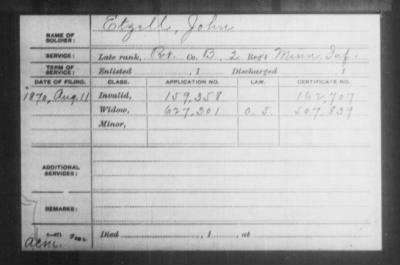 NAME OF SOLDIER: Etzell, John
SERVICE: Late rank, Pvt. Co. B, 2 Reg't Minn. Inf.
TERM OF SERVICE: Enlisted , 1 Discharged , 1
DATE OF FILING. CLASS. APPLICATION NO. LAW. CERTIFICATE NO.
1870, Aug. 11 Invalid, 159,358 162,707
Widow, 627,301 O. S. 507,839
Minor,
ADDITIONAL SERVICES:
REMARKS:
Died , 1 , at